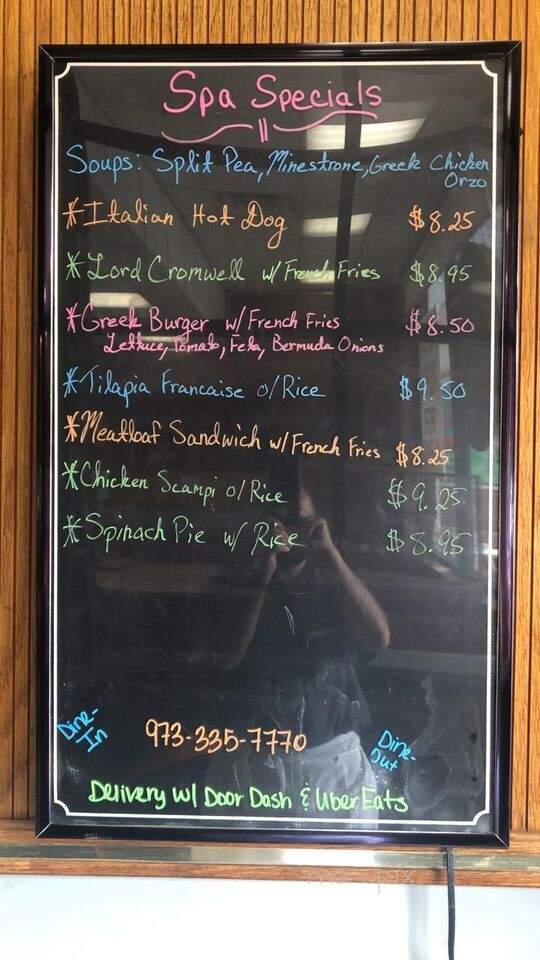 Spa Specials
Soups: Split Pea, Minestrone, Greek Chicken
Orzo
*Italian Hot Dog $8.25
*Lord Cromwell w/French Fries $8.95
*Greek Burger w/French Fries $8.50
Lettuce, Tomato, Feta, Bermuda Onions
*Tilapia Francaise o/Rice $9.50
*Meatloaf Sandwich w/French Fries $8.25
*Chicken Scampi o/Rice $9.25
*Spinach Pie w/ Rice $8.95
Dine-
In
973-335-7770
Dine-
Out
Delivery w/ Door Dash & Uber Eats